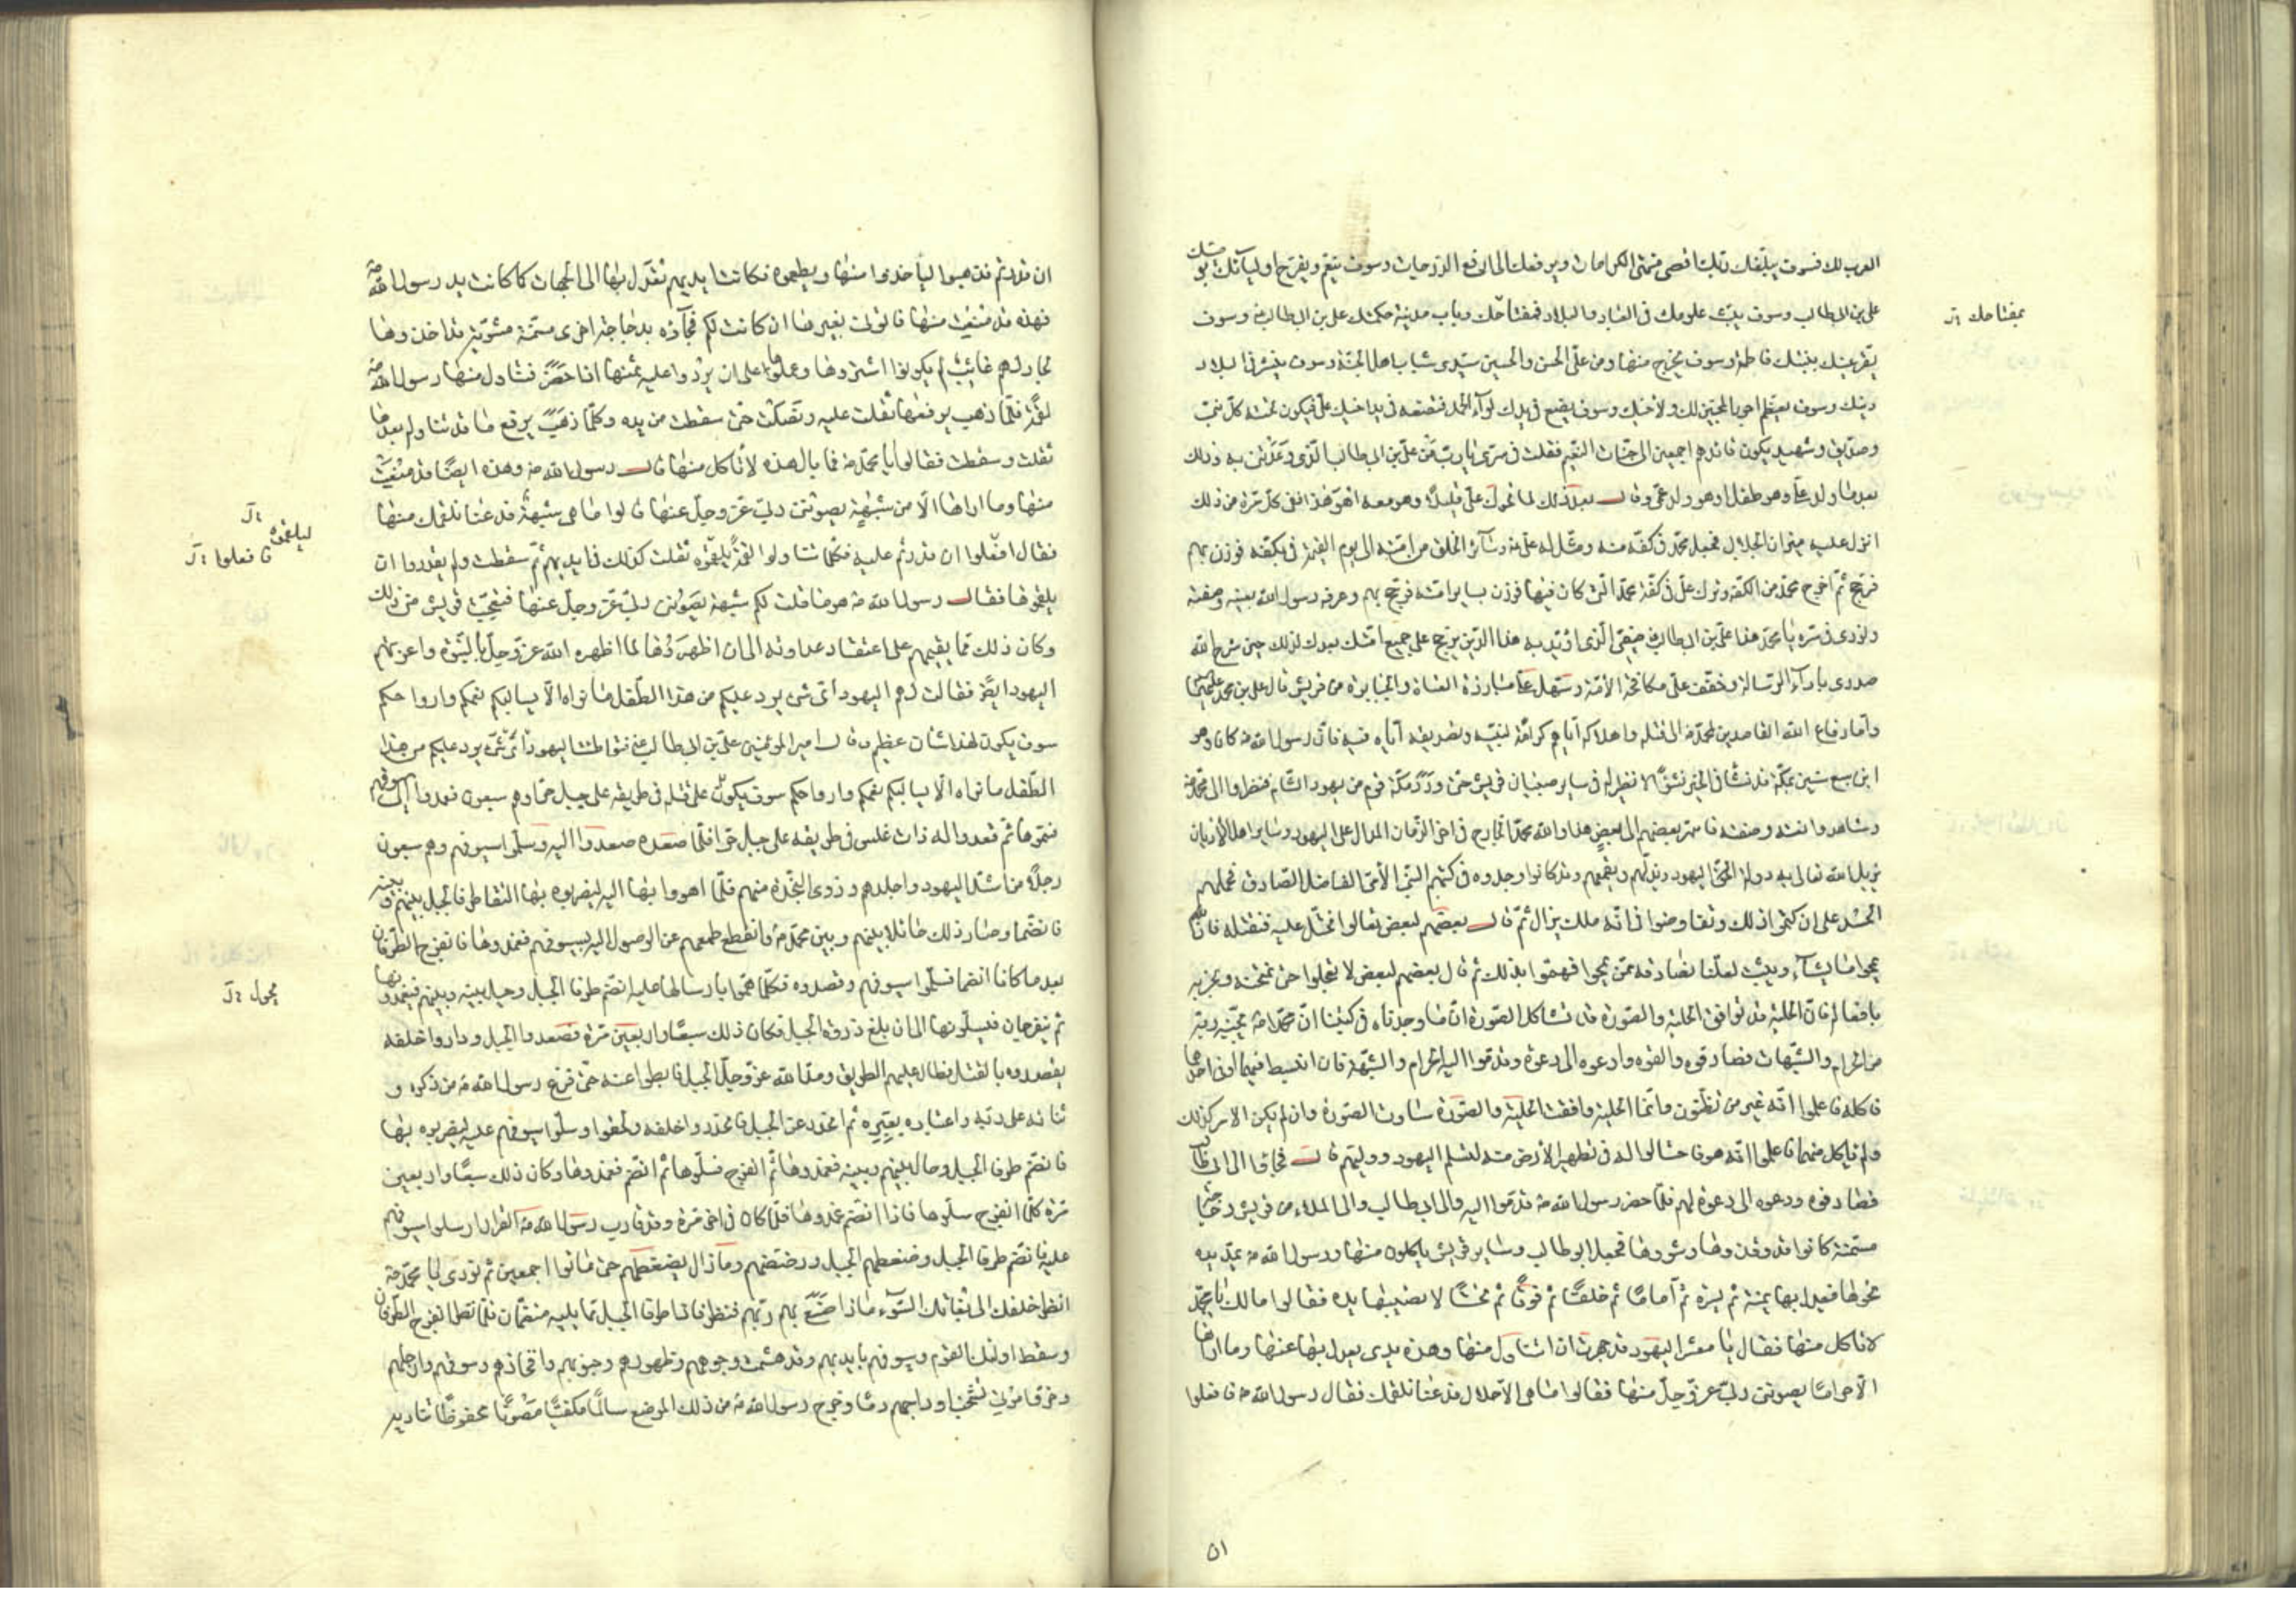 العرب لك فسوف يبلغك ربك اقصى منتهى الكرامات ويرفعك الى ارفع الدرجات وسوف ينعم ويفرح اوليائك بوصيك
على بن ابى طالب وسوف يبث علومك فى العباد والبلاد فمفتاحك وباب مدينة حكمتك على بن ابى طالب وسوف
بمفتاحك
يقر عينك ببنتك فاطمة وسوف يخرج منها ومن على الحسن والحسين سيدى شباب اهل الجنة وسوف ينشر فى البلاد
دينك وسوف يعظم اجور المحبين لك ولاخيك وسوف يضع فى يدك لوآء الحمد فتضعه فى يد اخيك على فيكون تحته كل نبى
وصديق وشهيد يكون قائدهم اجمعين الى جنات النعيم فقلت فى سرى يا رب من على بن ابى طالب الذى وعدتنى به وذلك
بعد ما ولد على وهو طفل اوهو ولد عمى وقال بعد ذلك لما تحرك على قليلا وهو معه اهو هذا ففى كل مرة من ذلك
انزل عليه ميزان الجلال فجعل محمد فى كفة منه ومثل له على وسآئر الخلق من امته الى يوم القيمة فى كفة فوزن بهم
فرجح ثم اخرج محمد من الكفة وترك على فى كفة محمد التى كان فيها فوزن بساير امته فرجح بهم وعرفه رسول الله بعينه وصفته
ونودى فى سره يا محمد هذا على بن ابى طالب صفيى الذى اؤيد به هذا الدين يرجح على جميع امتك بعدك فذلك حين شرح الله
صدرى بادآء الرسالة وخفف على مكافحة الامة وسهل على مبارزة العتاة والجبابرة من قريش قال على بن محمد
واما دفاع الله القاصدين لمحمد الى قتله واهلاكه اياهم كرامة لنبيه وتصديقه اياه فيه فان رسول الله كان وهو
ابن سبع سنين بمكة قد نشأ فى الخير نشوا لا نظير له فى ساير صبيان قريش حتى ورد مكة قوم من يهود الشام فنظروا الى محمد
وشاهدوا نعته وصفته فاسر بعضهم الى بعض هذا والله محمد الخارج فى اخر الزمان المدال على اليهود وساير اهل الاديان
يزيل الله تعالى به دولة اليهود ويذلهم ويقمعهم وقد كانوا وجدوه فى كتبهم النبى الامى الفاضل الصادق فحملهم
الحسد على ان كتموا ذلك وتفاوضوا فى انه ملك يزال ثم قال بعضهم لبعض تعالوا نحتال عليه فنقتله فان الله
يمحوا ما يشآء ويثبت لعلنا نصادفه ممن يمحوا فهموا بذلك ثم قال بعضهم لبعض لا تعجلوا حتى نمتحنه ونجربه
بافعاله فان الحلية قد توافق الحلية والصورة قد تشاكل الصورة ان ما وجدناه فى كتبنا ان محمدا يجنبه ربه
من الحرام والشبهات فصادفوه والقوه وادعوه الى دعوة وقدموا اليه الحرام والشبهة فان انبسط فيهما او فى احدهما
فاكله فاعلموا انه غير من تظنون وانما الحلية وافقت الحلية والصورة ساوت الصورة وان لم يكن الامر كذلك
ولم ياكل منهما فاعلموا انه هو فاحتالوا له فى تطهير الارض منه لتسلم لليهود دولتهم قال فجاؤا الى ابى طالب
فصادفوه ودعوه الى دعوة لهم فلما حضر رسول الله قدموا اليه والى ابى طالب والى الملاء من قريش دجاجة
مسمنة كانوا قد وقذوها وشووها فجعل ابو طالب وساير قريش ياكلون منها ورسول الله يمد يده
نحوها فيعدل بها يمنة ثم يسرة ثم اماما ثم خلفا ثم فوقا ثم تحتا لا تصيبها يده فقالوا مالك يا محمد
لا تاكل منها فقال يا معشر اليهود قد جهدت ان اتناول منها وهذه يدى يعدل بها عنها وما اراها
الا حراما يصوننى ربى عز وجل منها فقالوا ما هى الا حلال فدعنا نلقمك فقال رسول الله فافعلوا
٥١
ان قدرتم فذهبوا لياخذوا منها ويطعموه فكانت ايديهم تعدل بها الى الجهات كما كانت يد رسول الله
فهذه قد منعت منها فاتونى بغيرها ان كانت لكم فجآؤه بدجاجة اخرى مسمنة مشوية قد اخذوها
لجار لهم غائب لم يكونوا اشتروها وعملوا على ان يردوا عليه ثمنها اذا حضر فتناول منها رسول الله
لقمة فلما ذهب يرفعها ثقلت عليه وفصلت حتى سقطت من يده وكلما ذهب يرفع ما قد تناوله بعدها
ثقلت وسقطت فقالوا يا محمد فما بال هذه لا تاكل منها قال رسول الله وهذه ايضا قد منعت
منها وما اراها الا من شبهة يصوننى ربى عز وجل عنها قالوا ما هى شبهة فدعنا نلقمك منها
ليلقموه
فافعلوا
فقال افعلوا ان قدرتم عليه فكلما تناولوا لقمة ليلقموه ثقلت كذلك فى ايديهم ثم سقطت ولم يقدروا ان
يلقموها فقال رسول الله هو ما قلت لكم شبهة يصوننى ربى عز وجل عنها فتعجبت قريش من ذلك
وكان ذلك مما يقيمهم على اعتقاد عداوته الى ان اظهروها لما اظهره الله عز وجل بالنبوة واغرتهم
اليهود ايضا فقالت لهم اليهود اى شئ يرد عليكم من هذا الطفل ما نراه الا يسالبكم نعمكم وارواحكم
سوف يكون لهذا شان عظيم وقال امير المؤمنين على بن ابى طالب فتواطت اليهود
الطفل ما نراه الا يسالبكم نعمكم وارواحكم سوف يكون على قتله فى طريقه على جبل حرا وهم سبعون فعمدوا الى سيوفهم
فسموها ثم قعدوا له ذات غلس فى طريقه على جبل حرا فلما صعده صعدوا اليه وسلوا سيوفهم وهم سبعون
رجلا من اشد اليهود واجلدهم وذوى النجدة منهم فلما اهووا بها اليه ليضربوه بها التقا طرفا الجبل بينهم وبينه
فانضما وصار ذلك حائلا بينهم وبين محمد وانقطع طمعهم عن الوصول اليه بسيوفهم فغمدوها فانفرج الطرفان
بعد ما كانا انضما فسلوا سيوفهم وقصدوه فكلما هموا بارسالها عليه انضم طرفا الجبل وحيل بينه وبينهم فيغمدونها
يحول
ثم ينفرجان فيسلونها الى ان بلغ ذروة الجبل فكان ذلك سبعا واربعين مرة فصعدوا الجبل وداروا خلفه
يقصدوه بالقتل فطال عليهم الطريق ومد الله عز وجل الجبل فابطوا عنه حتى فرغ رسول الله من ذكره و
ثنائه على ربه واعتباره بعبره ثم انحدر عن الجبل فانحدروا خلفه ولحقوه وسلوا سيوفهم عليه ليضربوه بها
فانضم طرفا الجبل وحال بينهم وبينه فغمدوها ثم انفرج فسلوها ثم انضم فغمدوها وكان ذلك سبعا واربعين
مرة كلما انفرج سلوها فاذا انضم غمدوها فلما كان فى اخر مرة وقد قارب رسول الله القرار ارسلوا سيوفهم
عليه فانضم طرفا الجبل وضغطهم الجبل ورضضهم وما زال يضغطهم حتى ماتوا اجمعين ثم نودى يا محمد
انظر خلفك الى بغاتك السوء ماذا صنع بهم ربهم فنظر فاذا طرفا الجبل مما يليه منضمان فلما نظر انفرج الطرفان
وسقط اولئك القوم وسيوفهم بايديهم وقد هشمت وجوههم وظهورهم وجنوبهم وافخاذهم وسوقهم وارجلهم
وخروا موتى تشخب اوداجهم دما وخرج رسول الله من ذلك الموضع سالما مكفيا مصونا محفوظا تناديه